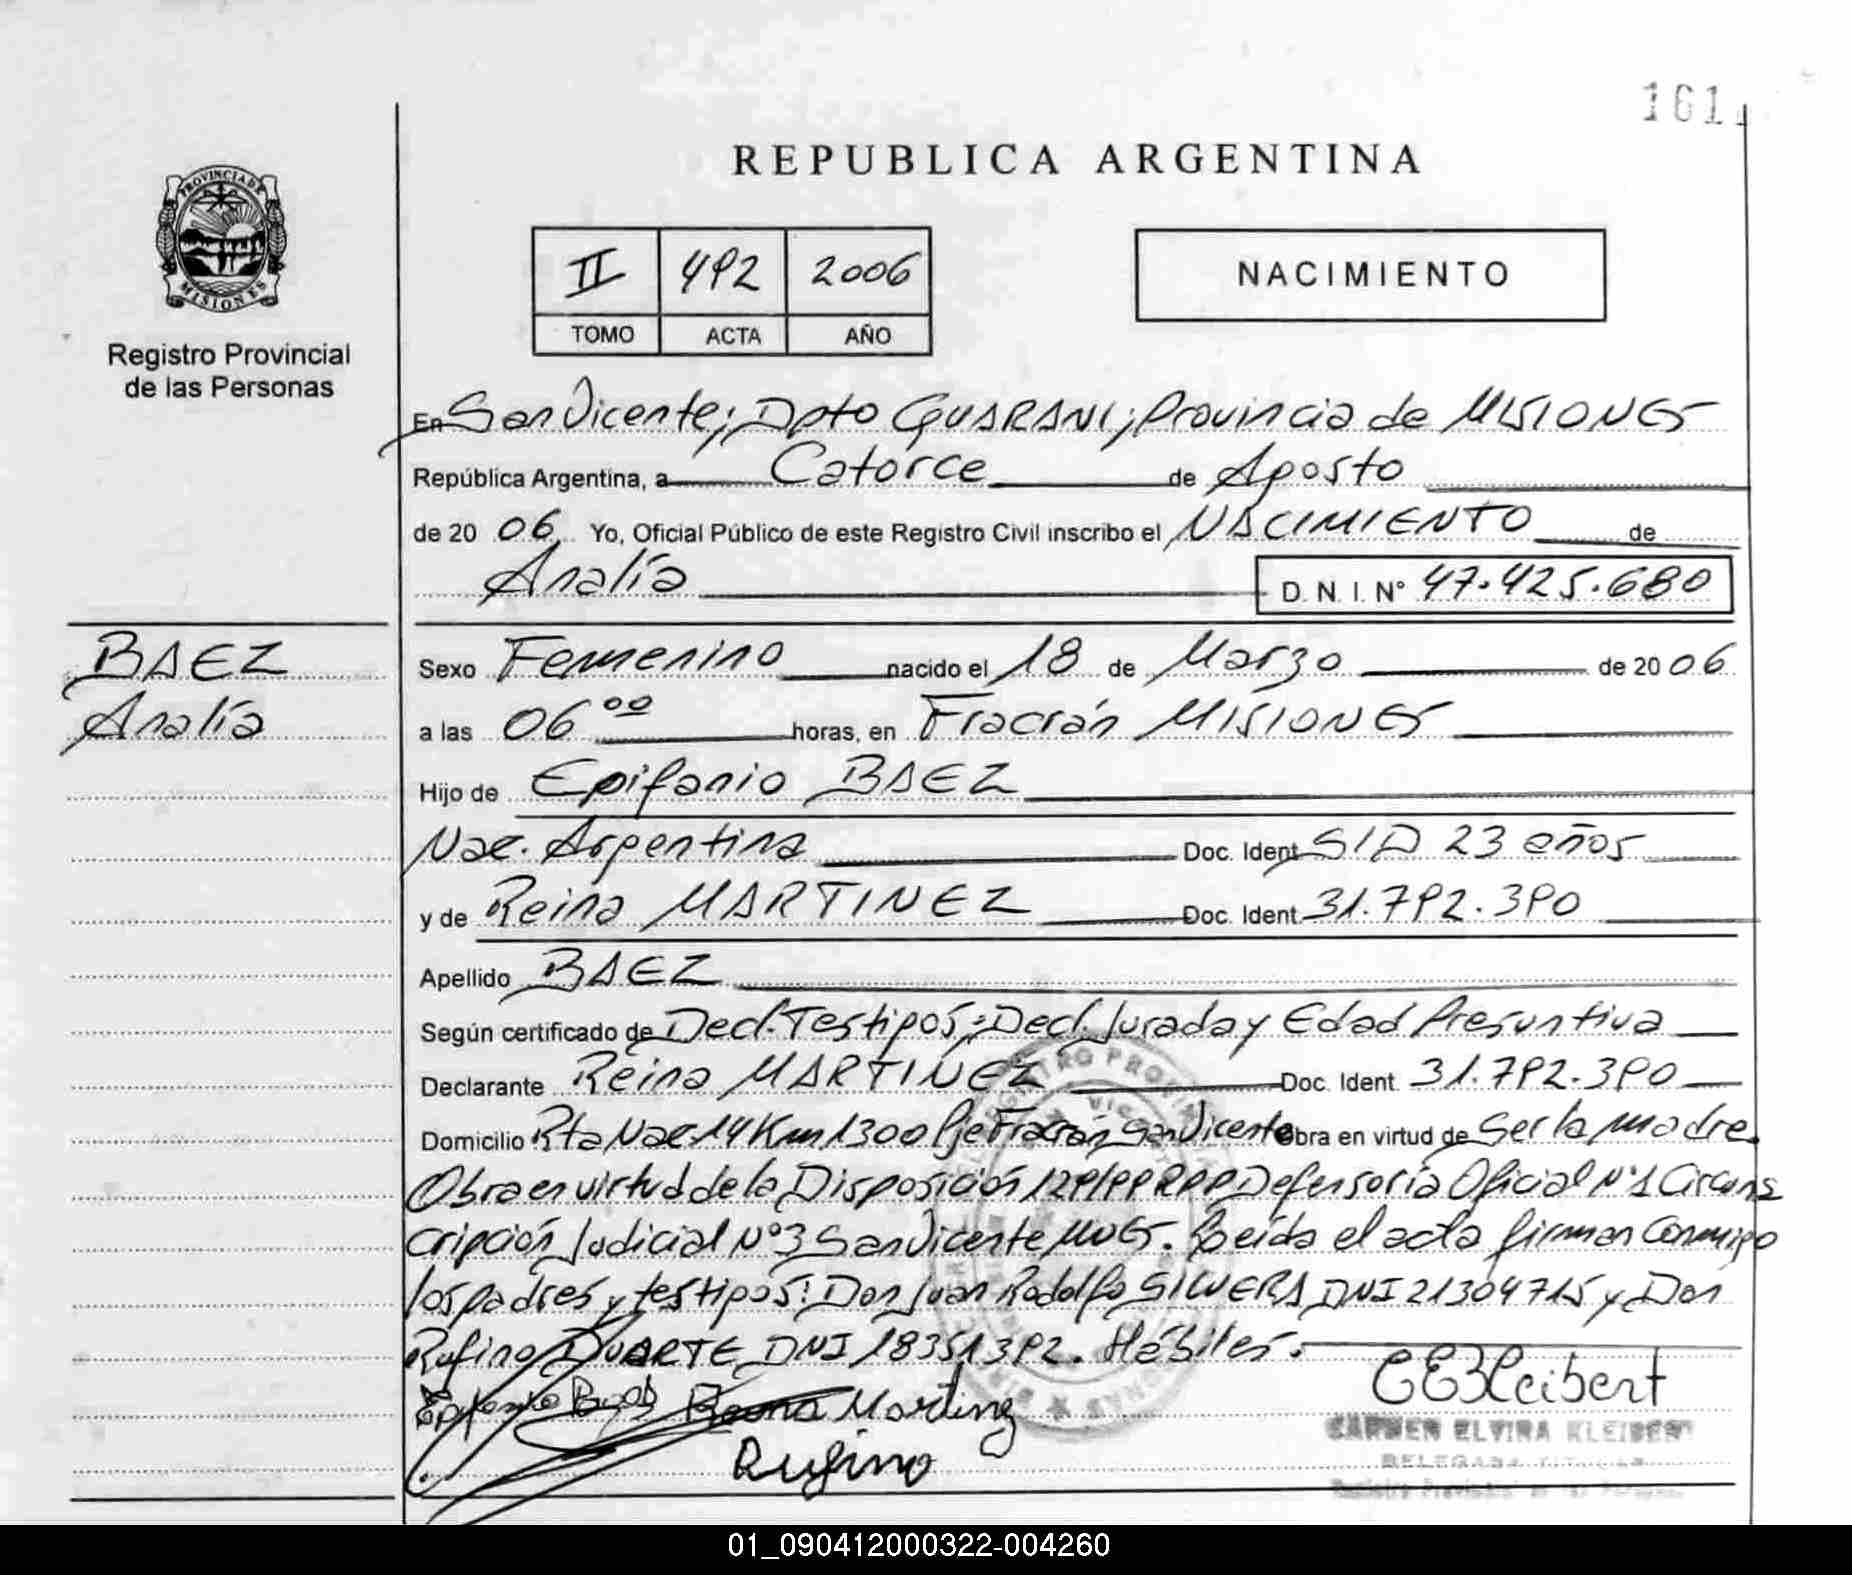 161
REPUBLICA ARGENTINA
PROVINCIA DE
MISIONES
Registro Provincial
de las Personas
II 492 2006
TOMO ACTA AÑO
NACIMIENTO
En San Vicente; Dpto GUARANI; Provincia de MISIONES
República Argentina, a Catorce de Agosto
de 20 06 Yo, Oficial Público de este Registro Civil inscribo el NACIMIENTO de
Analía D. N. I. Nº 47.425.680
BAEZ
Analía
Sexo Femenino nacido el 18 de Marzo de 20 06
a las 06 00 horas, en Fracrán MISIONES
Hijo de Epifanio BAEZ
Nac. Argentina Doc. Ident S/D 23 años
y de Reina MARTINEZ Doc. Ident 31.792.390
Apellido BAEZ
Según certificado de Decl. Testigos; Decl. Jurada y Edad Presuntiva
Declarante Reina MARTINEZ Doc. Ident 31.792.390
Domicilio Rta Nac 14 Km 1300 Pje Fracrán San Vicente Obra en virtud de Ser la madre.
Obra en virtud de la Disposición 129/99 RPP Defensoría Oficial Nº 1 Circuns
cripción Judicial Nº 3 San Vicente Mnes. Leída el acta firman conmigo
los padres y testigos: Don Juan Rodolfo SILVERA DNI 21304715 y Don
Rufino DUARTE DNI 18351392. Hábiles.
CEKleibert
Martinez
Rufino
CARMEN ELVIRA KLEIBERT
DELEGADA TITULAR
Registro Provincial de las Personas
01_090412000322-004260